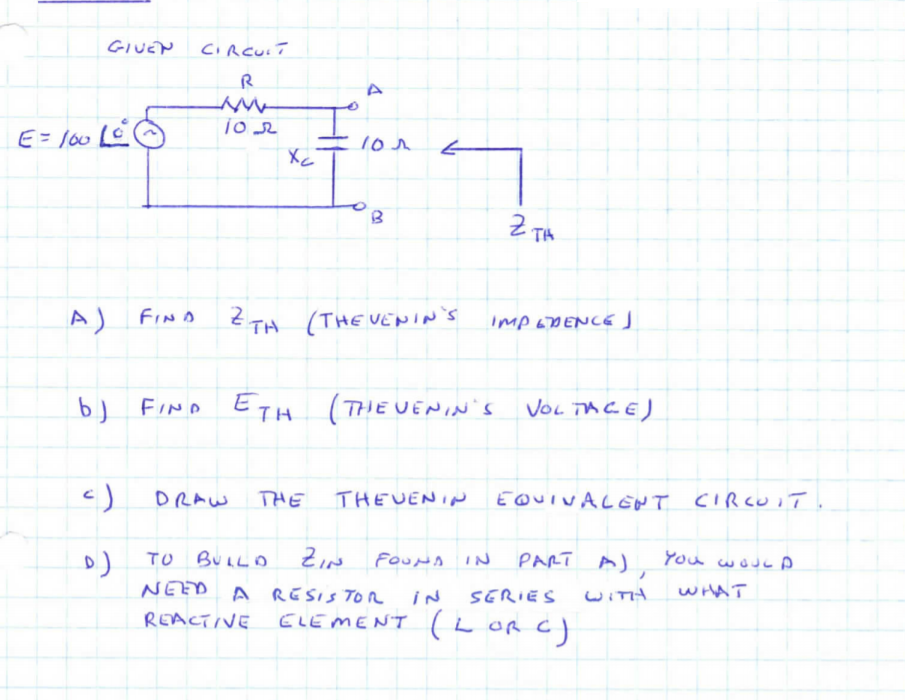 GIVEN CIRCUIT
R
A
E = 100 ∠0° ~
10 Ω
Xc
10 Ω
B
Z TH
A) FIND Z TH (THEVENIN'S IMPEDENCE)
b) FIND E TH (THEVENIN'S VOLTAGE)
c) DRAW THE THEVENIN EQUIVALENT CIRCUIT.
D) TO BUILD ZIN FOUND IN PART A), YOU WOULD
NEED A RESISTOR IN SERIES WITH WHAT
REACTIVE ELEMENT (L OR C)